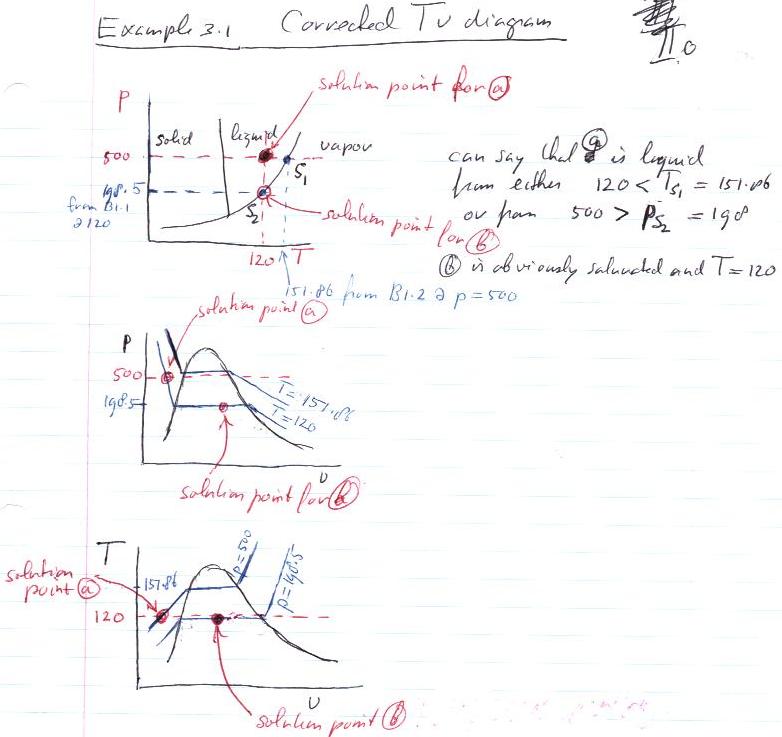 Example 3.1 Corrected Tv diagram
II.0
solution point for ⓐ
P
solid liquid vapor
500
S1
198.5
from B1.1
@120
S2
solution point
for ⓑ
120 T
151.86 from B1.2 @ p=500
can say that ⓐ is liquid
from either 120 < TS1 = 151.86
or from 500 > PS2 = 198
ⓑ is obviously saturated and T=120
solution point ⓐ
P
500
198.5
T=151.86
T=120
v
solution point for ⓑ
T
solution
point ⓐ
151.86
p=500
p=198.5
120
v
solution point ⓑ